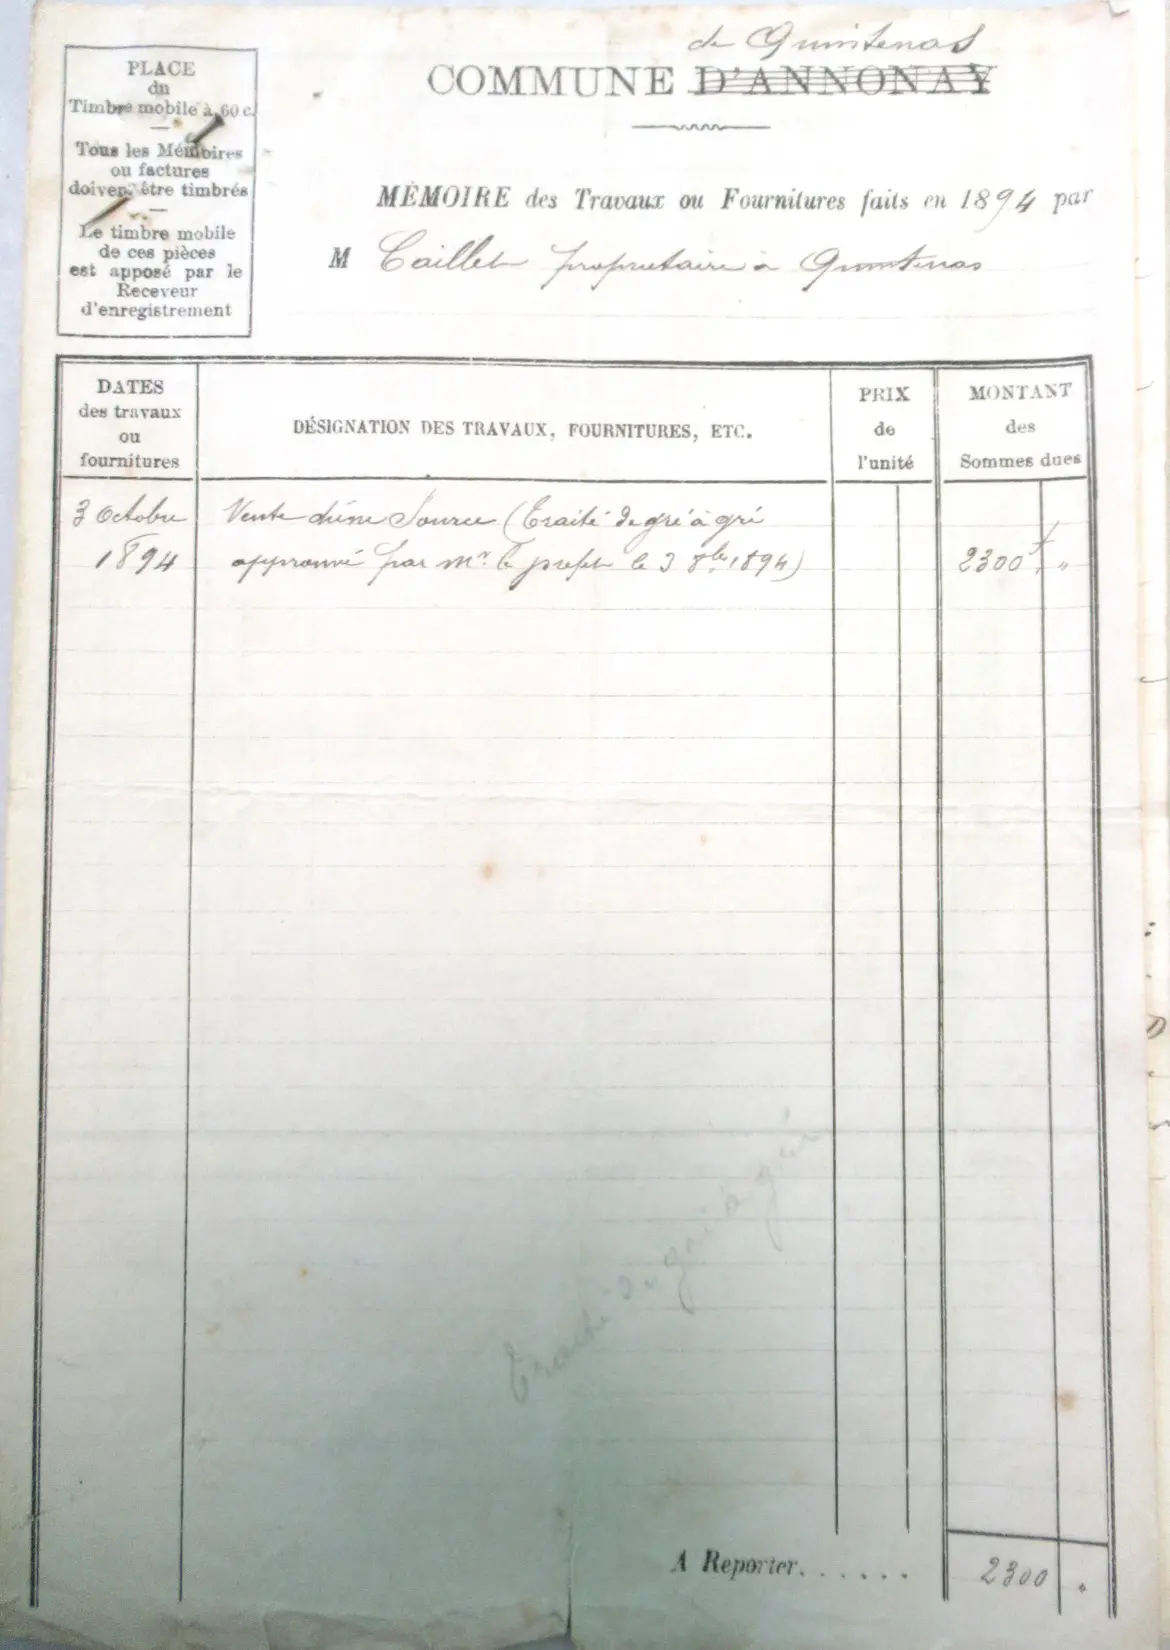 de Quintenas
COMMUNE D'ANNONAY
PLACE
du
Timbre mobile à 60 c.
Tous les Mémoires
ou factures
doivent être timbrés
Le timbre mobile
de ces pièces
est apposé par le
Receveur
d'enregistrement
MÉMOIRE des Travaux ou Fournitures faits en 1894 par
M Caillet propriétaire à Quintenas
DATES
des travaux
ou
fournitures
DÉSIGNATION DES TRAVAUX, FOURNITURES, ETC.
PRIX
de
l'unité
MONTANT
des
Sommes dues
3 Octobre
1894
Vente d'une Source (Traité de gré à gré
approuvé par Mr le préfet le 3 8bre 1894)
2300 f "
Traité de gré à gré
A Reporter......
2300 "